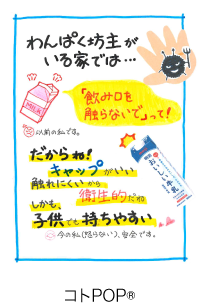 わんぱく坊主が
いる家では…
MILK
「飲み口を
触らないで」って!
以前の私です。
だからね!
キャップがいい
触れにくいから
衛生的だね
しかも、
子供でも持ちやすい
今の私(怒らない)、安全です。
明治
おいしい牛乳
コトPOP®